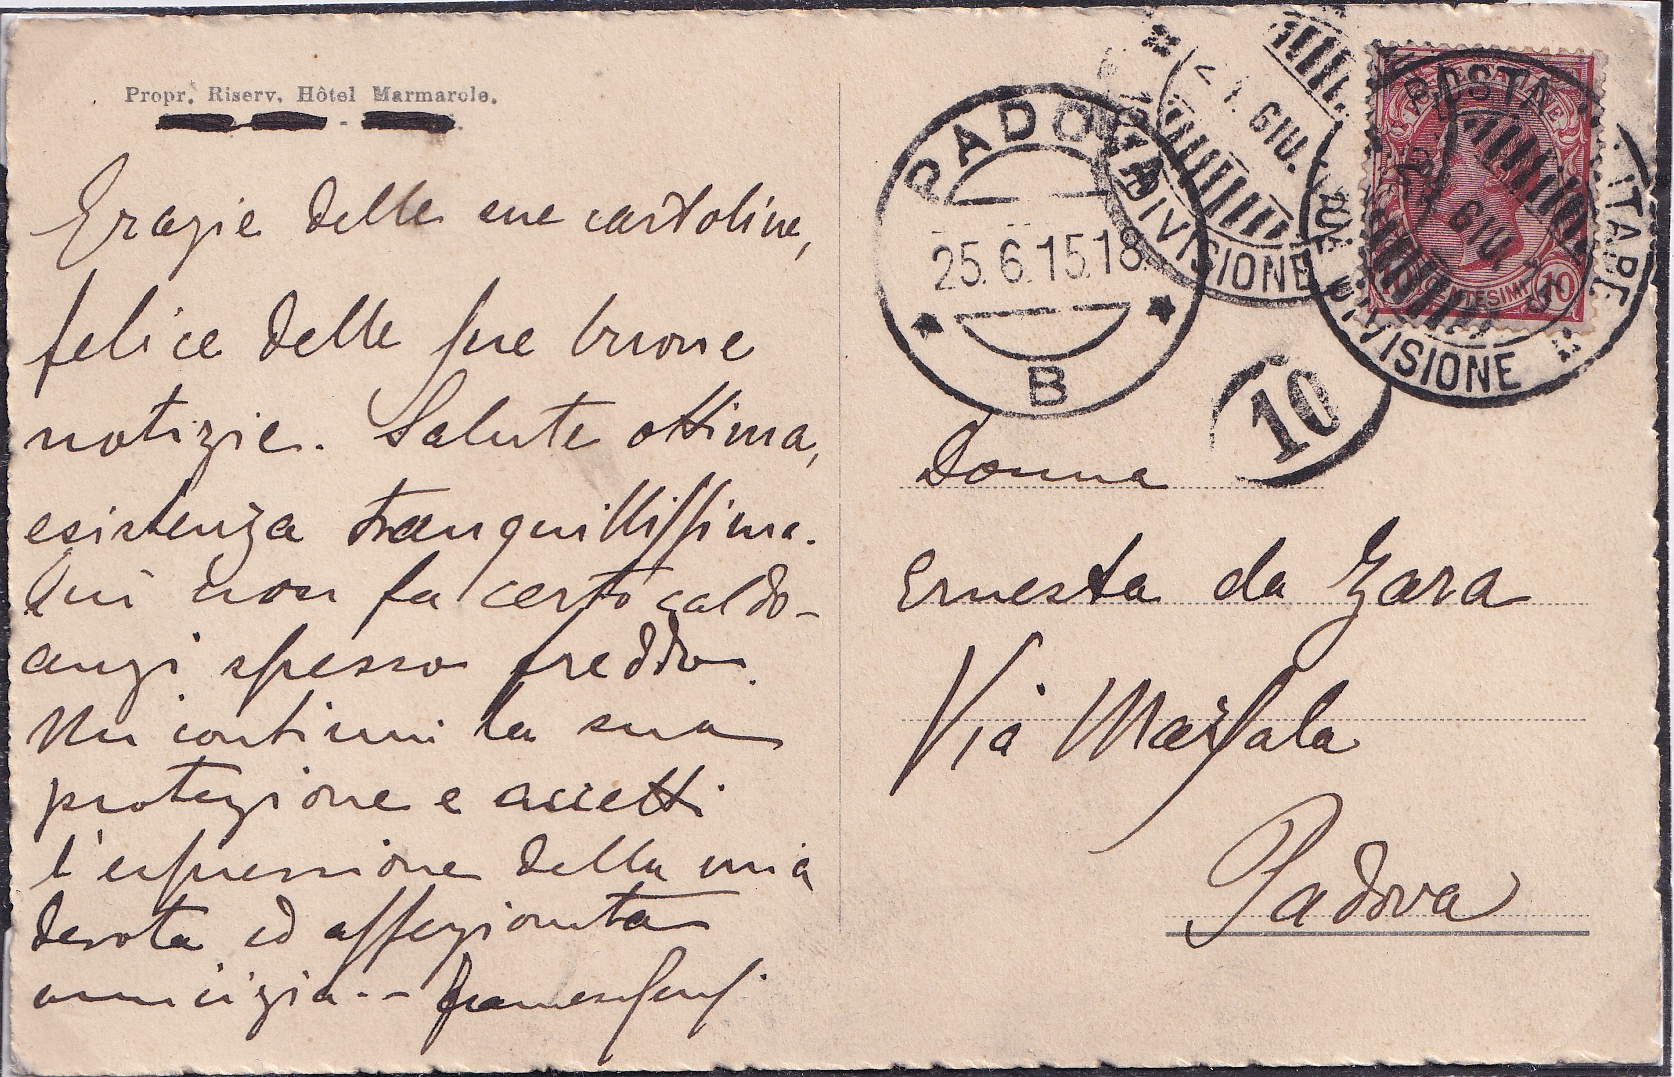 Propr. Riserv. Hôtel Marmarole.
Grazie delle sue cartoline,
felice delle sue buone
notizie. Salute ottima,
esistenza tranquillissima.
Qui non fa certo caldo -
anzi spesso freddo.
Mi continui la sua
protezione e accetti
l'espressione della mia
devota ed affezionata
amicizia. -
PADOVA
25.6.15.18
B
DIVISIONE
GIU.
POSTA MILITARE
GIU.
DIVISIONE
POSTE ITALIANE
CENTESIMI 10
10
Donna
Ernesta da Zara
Via Marsala
Padova